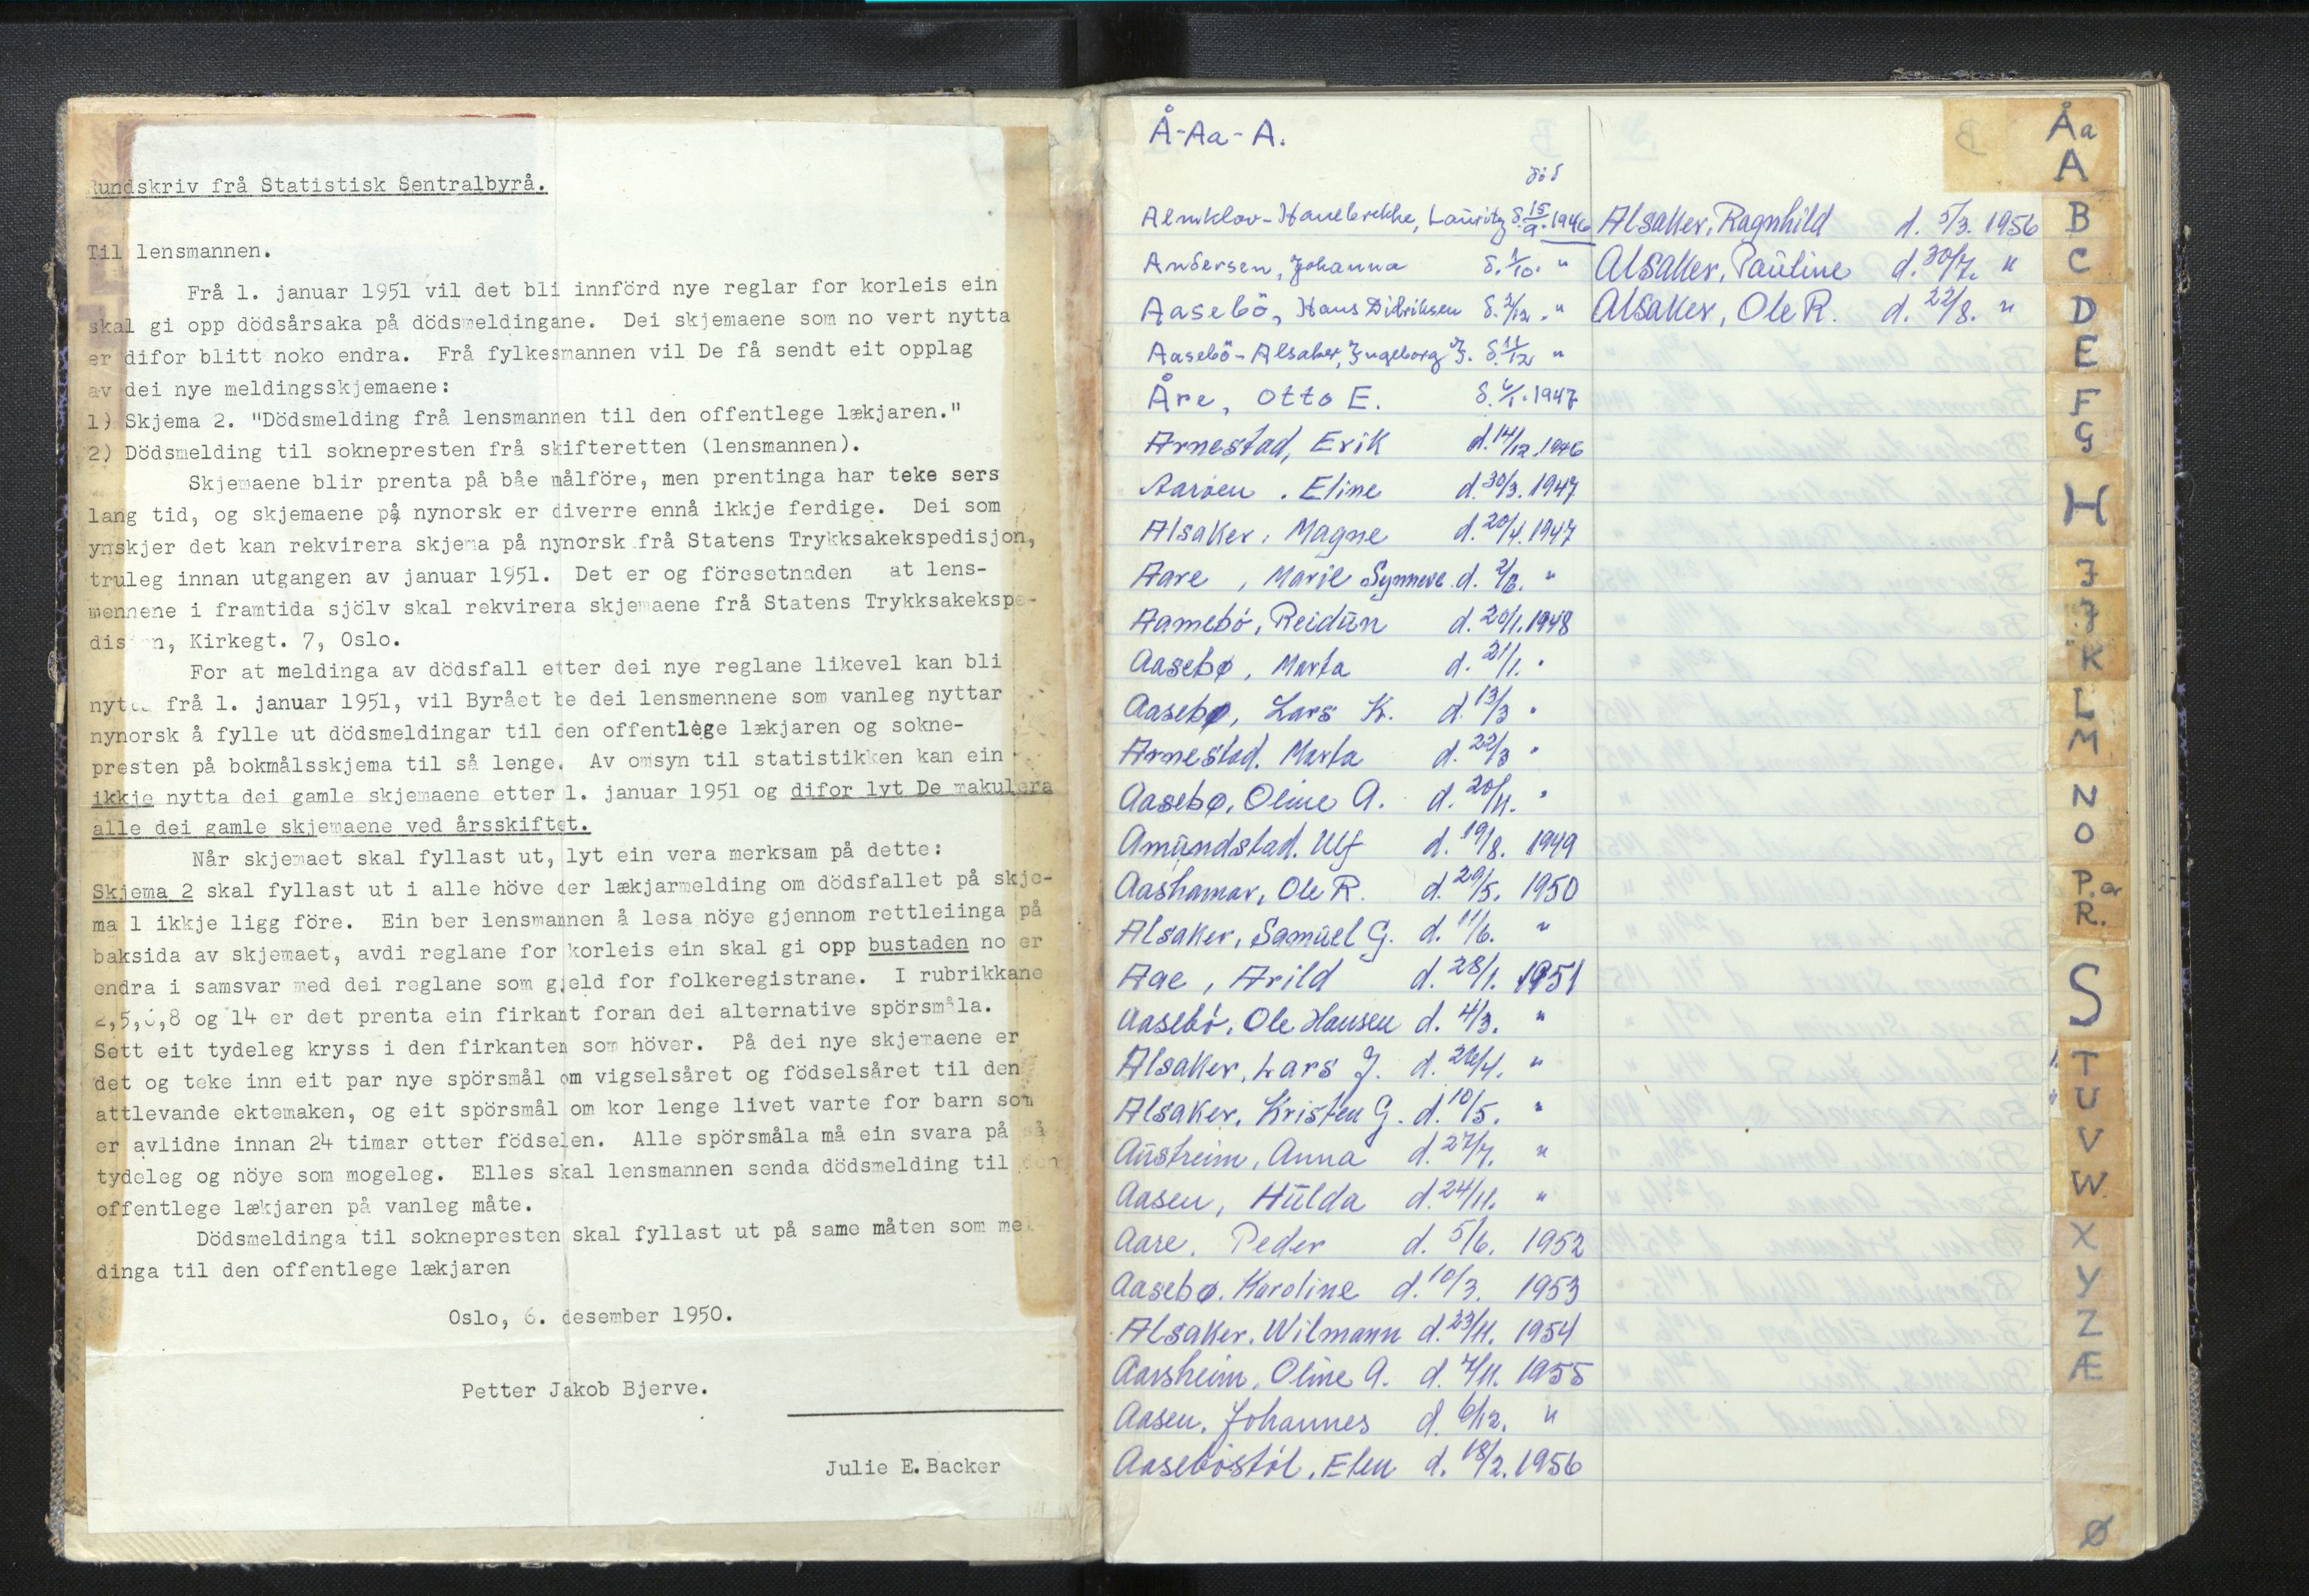 Rundskriv frå Statistisk Sentralbyrå.
Til lensmannen.
Frå 1. januar 1951 vil det bli innförd nye reglar for korleis ein
skal gi opp dödsårsaka på dödsmeldingane. Dei skjemaene som no vert nytta
er difor blitt noko endra. Frå fylkesmannen vil De få sendt eit opplag
av dei nye meldingsskjemaene:
1) Skjema 2. "Dödsmelding frå lensmannen til den offentlege lækjaren."
2) Dödsmelding til soknepresten frå skifteretten (lensmannen).
Skjemaene blir prenta på båe målföre, men prentinga har teke sers
lang tid, og skjemaene på nynorsk er diverre ennå ikkje ferdige. Dei som
ynskjer det kan rekvirera skjema på nynorsk frå Statens Trykksakekspedisjon,
truleg innan utgangen av januar 1951. Det er og föresetnaden at lens-
mennene i framtida sjölv skal rekvirera skjemaene frå Statens Trykksakekspe-
disjon, Kirkegt. 7, Oslo.
For at meldinga av dödsfall etter dei nye reglane likevel kan bli
nytta frå 1. januar 1951, vil Byrået be dei lensmennene som vanleg nyttar
nynorsk å fylle ut dödsmeldingar til den offentlege lækjaren og sokne-
presten på bokmålsskjema til så lenge. Av omsyn til statistikken kan ein
ikkje nytta dei gamle skjemaene etter 1. januar 1951 og difor lyt De makulera
alle dei gamle skjemaene ved årsskiftet.
Når skjemaet skal fyllast ut, lyt ein vera merksam på dette:
Skjema 2 skal fyllast ut i alle höve der lækjarmelding om dödsfallet på skje-
ma 1 ikkje ligg före. Ein ber lensmannen å lesa nöye gjennom rettleiinga på
baksida av skjemaet, avdi reglane for korleis ein skal gi opp bustaden no er
endra i samsvar med dei reglane som gjeld for folkeregistrane. I rubrikkane
2,5,6,8 og 14 er det prenta ein firkant foran dei alternative spörsmåla.
Sett eit tydeleg kryss i den firkanten som höver. På dei nye skjemaene er
det og teke inn eit par nye spörsmål om vigselsåret og födselsåret til den
attlevande ektemaken, og eit spörsmål om kor lenge livet varte for barn som
er avlidne innan 24 timar etter födselen. Alle spörsmåla må ein svara på så
tydeleg og nöye som mogeleg. Elles skal lensmannen senda dödsmelding til den
offentlege lækjaren på vanleg måte.
Dödsmeldinga til soknepresten skal fyllast ut på same måten som mel-
dinga til den offentlege lækjaren
Oslo, 6. desember 1950.
Petter Jakob Bjerve.
Julie E. Backer
Å-Aa-A.
död
Almklov-Hauebrekke, Lauritz d. 15/9. 1946
Andersen, Johanna d. 1/10. "
Aasebö, Hans Didriksen d. 2/12. "
Aasebö-Alsaker, Ingeborg J. d. 11/12 "
Åre, Otto E. d. 4/1. 1947
Arnestad, Erik d. 14/12. 1946
Aaröen. Eline d. 30/3. 1947
Alsaker, Magne d. 20/4. 1947
Aare, Marie Synneve d. 2/8. "
Aamebö, Reidun d. 20/1. 1948
Aasebø, Marta d. 21/1. "
Aasebø, Lars K. d. 13/3 "
Arnestad. Marta d. 22/3 "
Aasebø, Oline A. d. 20/11. "
Amundstad. Ulf d. 19/8. 1949
Aashamar, Ole R. d. 29/5. 1950
Alsaker, Samuel G. d. 11/6. "
Aae, Arild d. 28/1. 1951
Aasebö, Ole Hansen d. 4/3. "
Alsaker, Lars J. d. 26/4. "
Alsaker, Kristen G. d. 10/5. "
Austreim, Anna d. 27/7. "
Aasen, Hulda d. 24/11. "
Aare. Peder d. 5/6. 1952
Aasebø. Karoline d. 10/3. 1953
Alsaker. Wilmann d. 23/11. 1954
Aarsheim, Oline A. d. 7/11. 1955
Aasen. Johannes d. 6/12. "
Aaseböstöl. Elen d. 18/2. 1956
Alsaker, Ragnhild d. 5/3. 1956
Alsaker, Pauline d. 30/7. "
Alsaker, Ole R. d. 22/8. "
Åa
A
B
C
D
E
F
G
H
I
J
K
L
M
N
O
P. Q
R.
S
T
U
V
W.
X
Y
Z
Æ
Ø